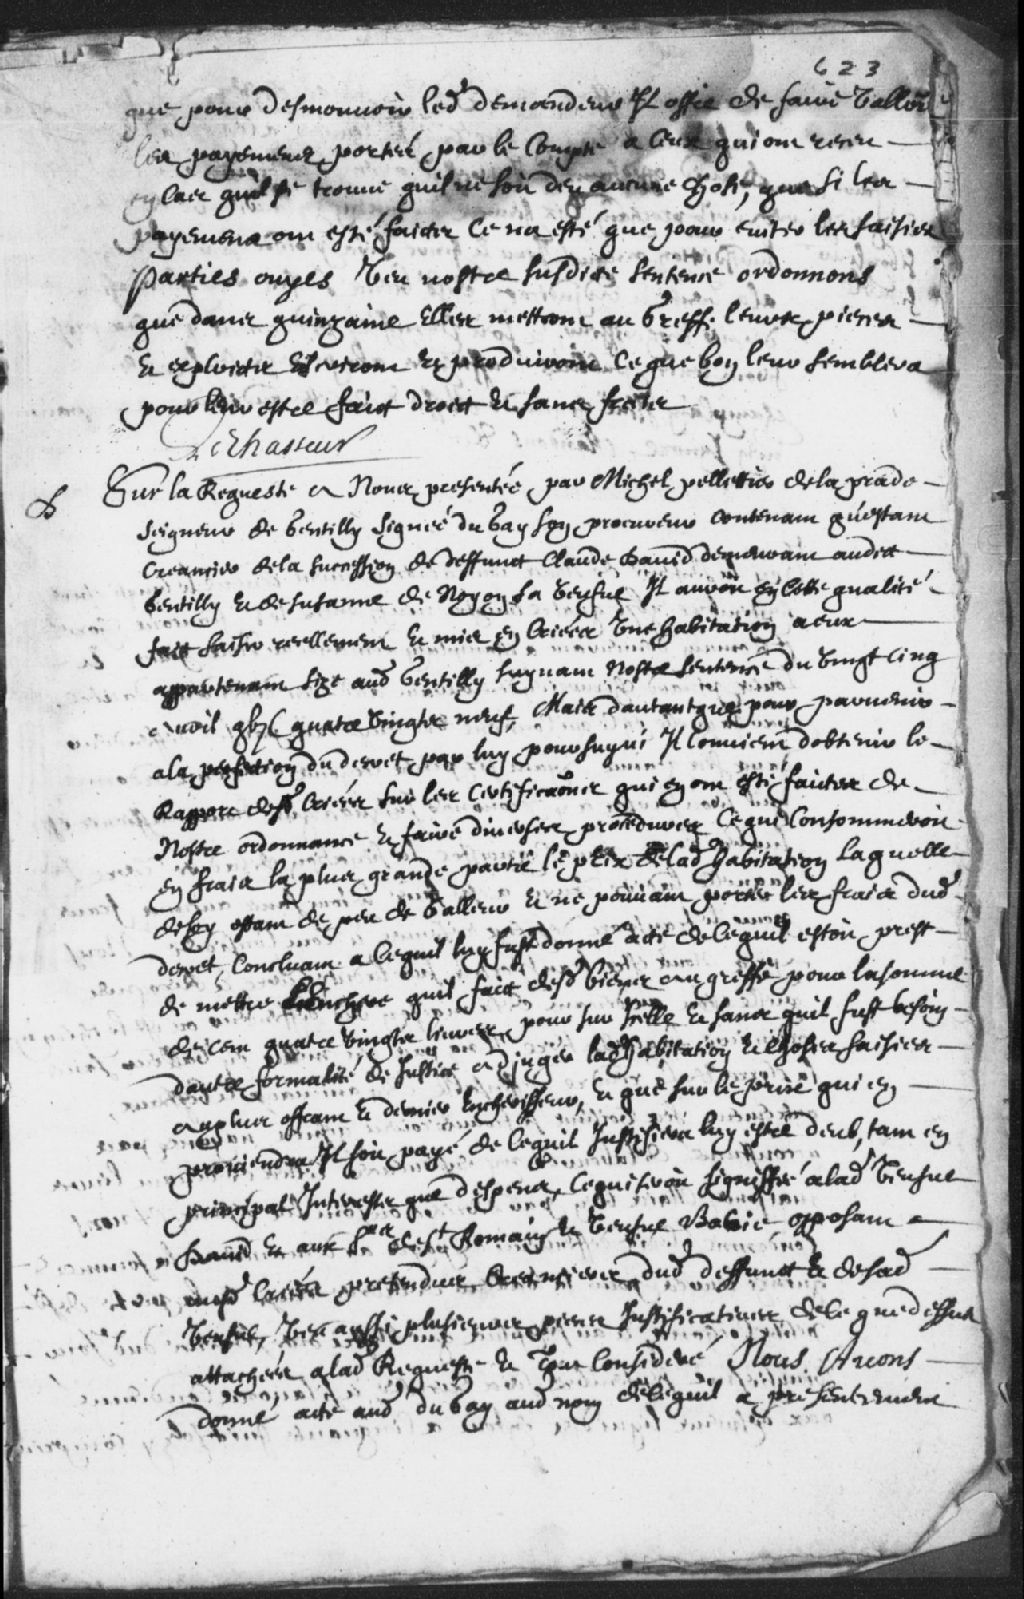 623
que pour desmouuoir led demandeur Il offre de faire valloir
les payemens portés par le Compte a Ceux qui ont receu
en Cas quil se trouue quil ne soit deu aucune chose, que si les
payemens ont esté faictes Ce na esté que pour euiter les saisies
Parties ouyes Veu nostre susdite sentence ordonnons
que dans quinzaine Elles mettront au Greffe leurs pieces
et exploicts Escriront et produiront Ce que bon leur semblera
pour leur estre faict droict et sans frais
LeChasseur
Sur la Requeste a Nous presentée par Michel pellettier de la prade
seigneur de Gentilly signeé du Bay son procureur contenant quéstant
Creancier de la succession de deffunct Claude Dauid demeurant audit
Gentilly et de susanne de Noyon sa Veufue Il auroit en Cette qualité
fait saisir reellement et mis en Criées Une habitation a eux
appartenant size aud Gentilly suyuant Nostre sentence du Vingt Cinq
auril gbjC quatre Vingts neuf, Mais dautantque pour paruenir
a la perfection du decret par luy poursuyui Il Conuient dobtenir le
Rapport desd Criées sur les Certificaõns qui en ont esté faictes de
Nostre ordonnance et faire diuerses procédures Ce qui Consommeroit
en frais la plus grande partie le prix de lad habitation laquelle
de soy estant de peu de Valleur et ne pouuant porter les frais dud
decret, Concluant a Cequil luy fust donné acte de Cequil estoit prest
de mettre Lenchere quil faict desd biens au greffe pour la somme
de cent quatre Vingts liures pour sur Icelle et sans quil fust besoin
dautre formalité de Justice adjuger lad habitation et choses saisies
au plus offrant et dernier Encherisseur, et que sur le prix qui en
prouiendra Il soit payé de Cequil Justifiera luy estre deub, tant en
principal Interests que despens, Cequi seroit signiffié a lad Veufue
Dauid et aux Srs de St Romain et Veufue Babie opposant
ausd Criées pretendus Creanciers dud deffunct et de sad
Veufue, Veu aussi plusieurs pieces Justificatiues de Ce que dessus
attachées a lad Requeste et Tout Consideré Nous Auons
donné acte aud du Bay aud nom de Cequil a presentement